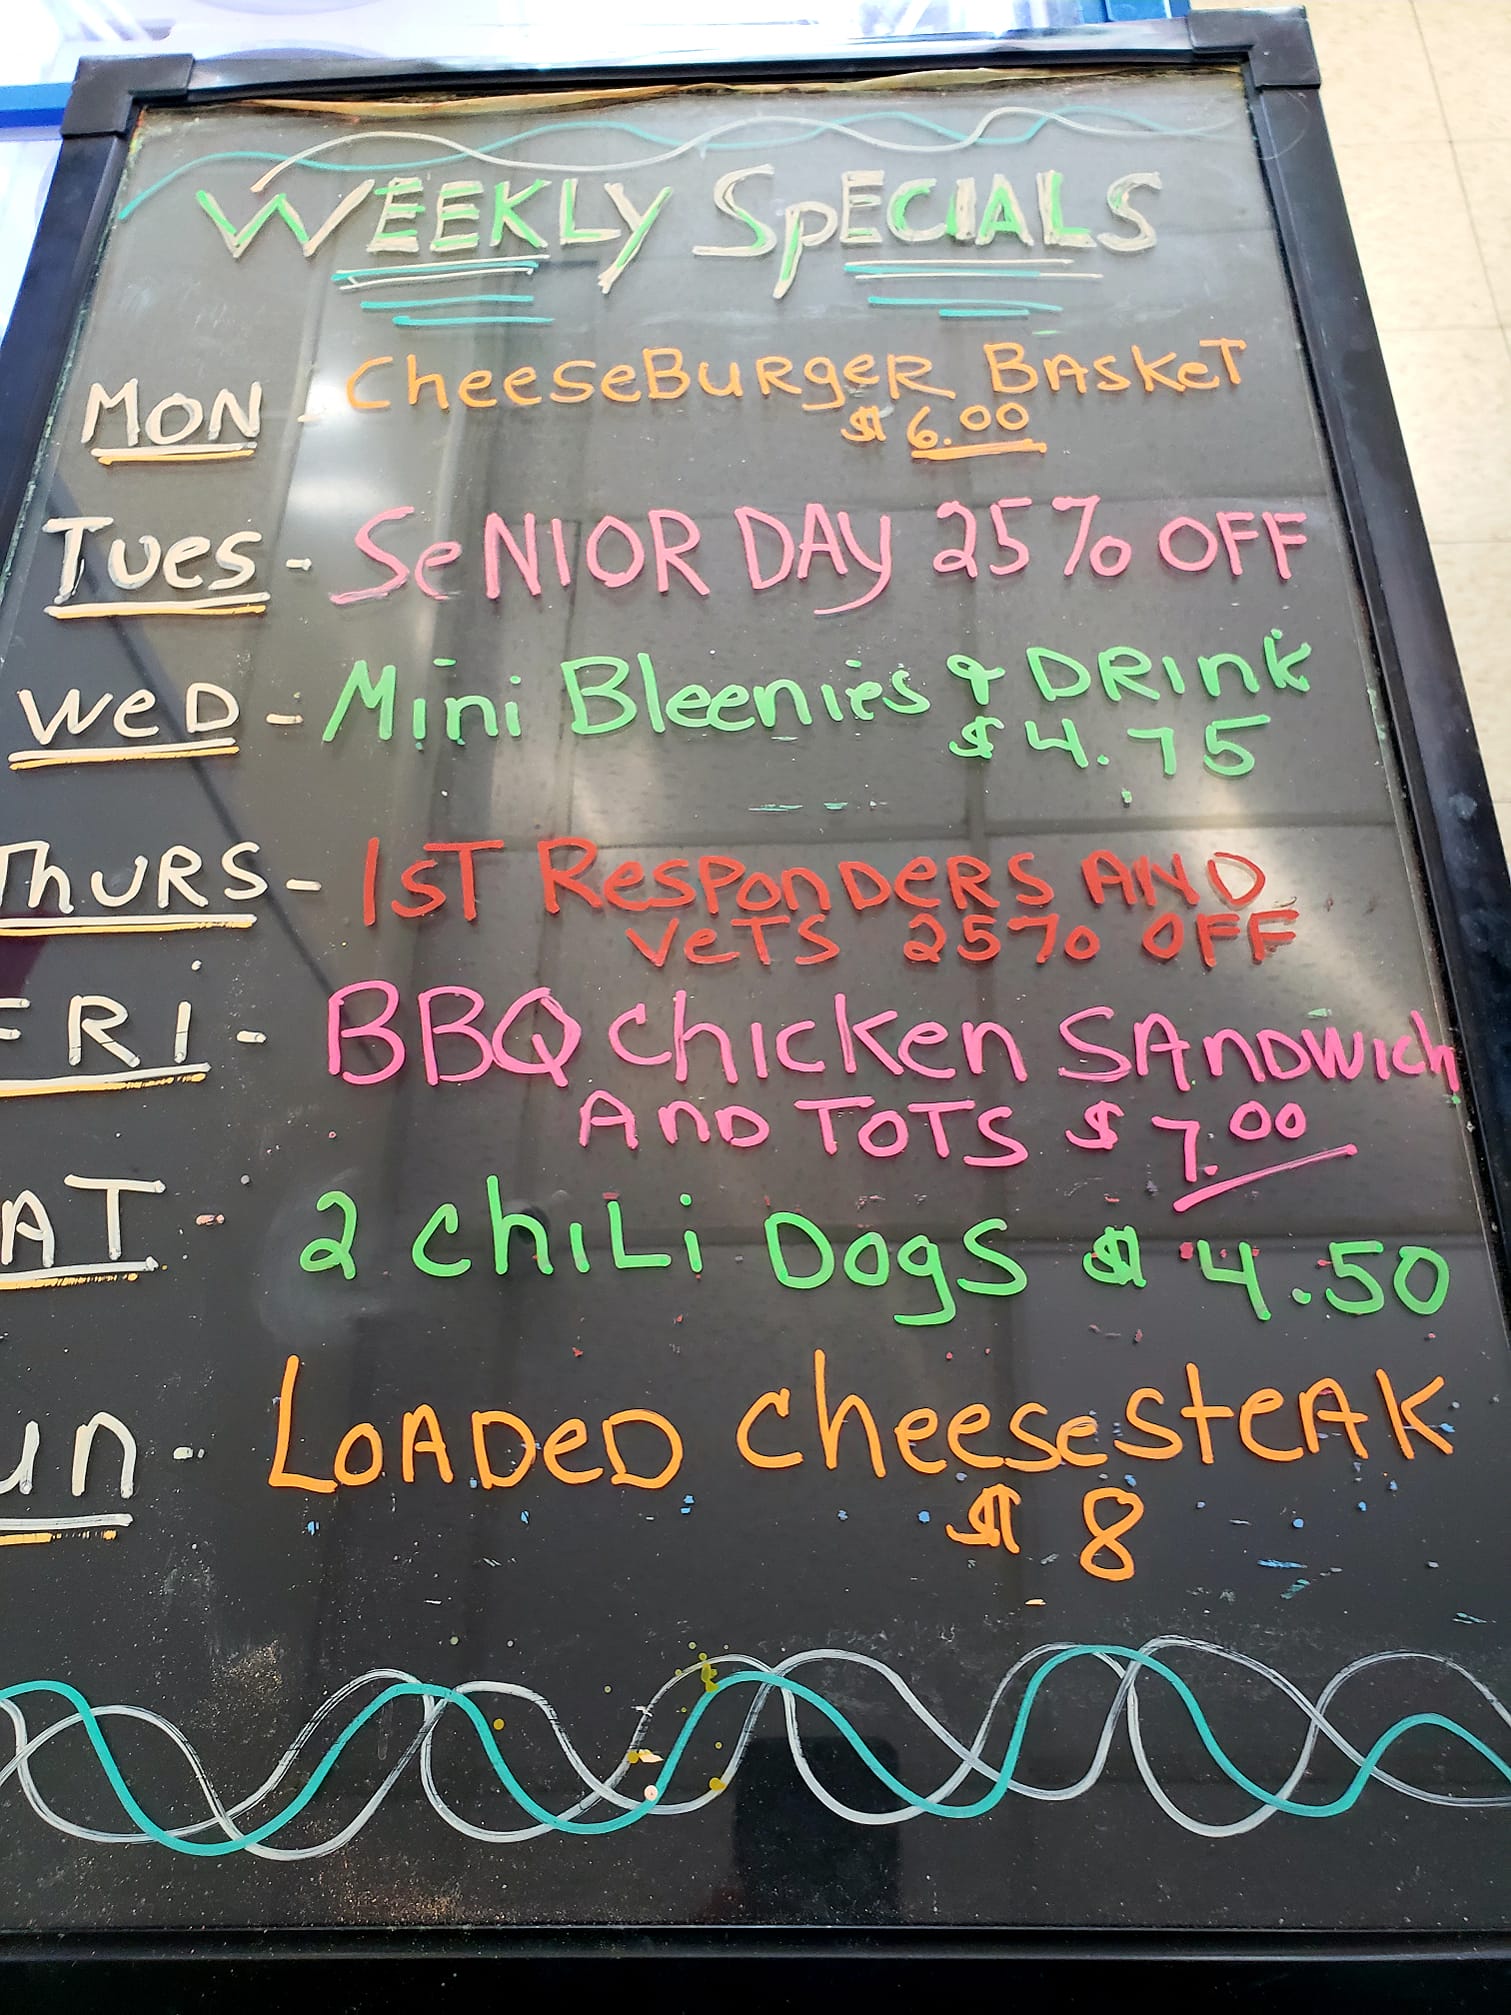 WEEKLY SpECIALS
MON - CheeseBuRgeR BASKeT
$6.00
Tues - SeNIOR DAY 25% OFF
WeD - Mini Bleenies & DRink
$4.75
ThuRS - 1sT ResponDeRS AND
VeTS 25% OFF
FRi - BBQ chicken SAnDwich
AnD TOTS $7.00
AT - 2 chiLi DogS $4.50
un - LoADeD cheesesteAK
$8